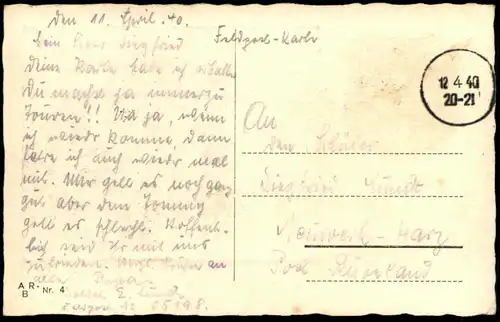 den 11. April. 40.
Mein lieber Siegfried
Deine Karte habe ich erhalten
Du machst ja immerzu
Touren!! Und ja, wenn
ich wieder komme, dann
fahre ich auch wieder mal
mit. Mir geht es noch ganz
gut aber dem Tommy
geht es schlecht. Hoffent-
lich seid Ihr mit uns
zufrieden. an
alle Papa
E.
05198.
A R- Nr. 4
B
Feldpost-Karte
12.4.40
20-21
An
den Schüler
Siegfried
Neuwerk-Harz
Post Rübeland